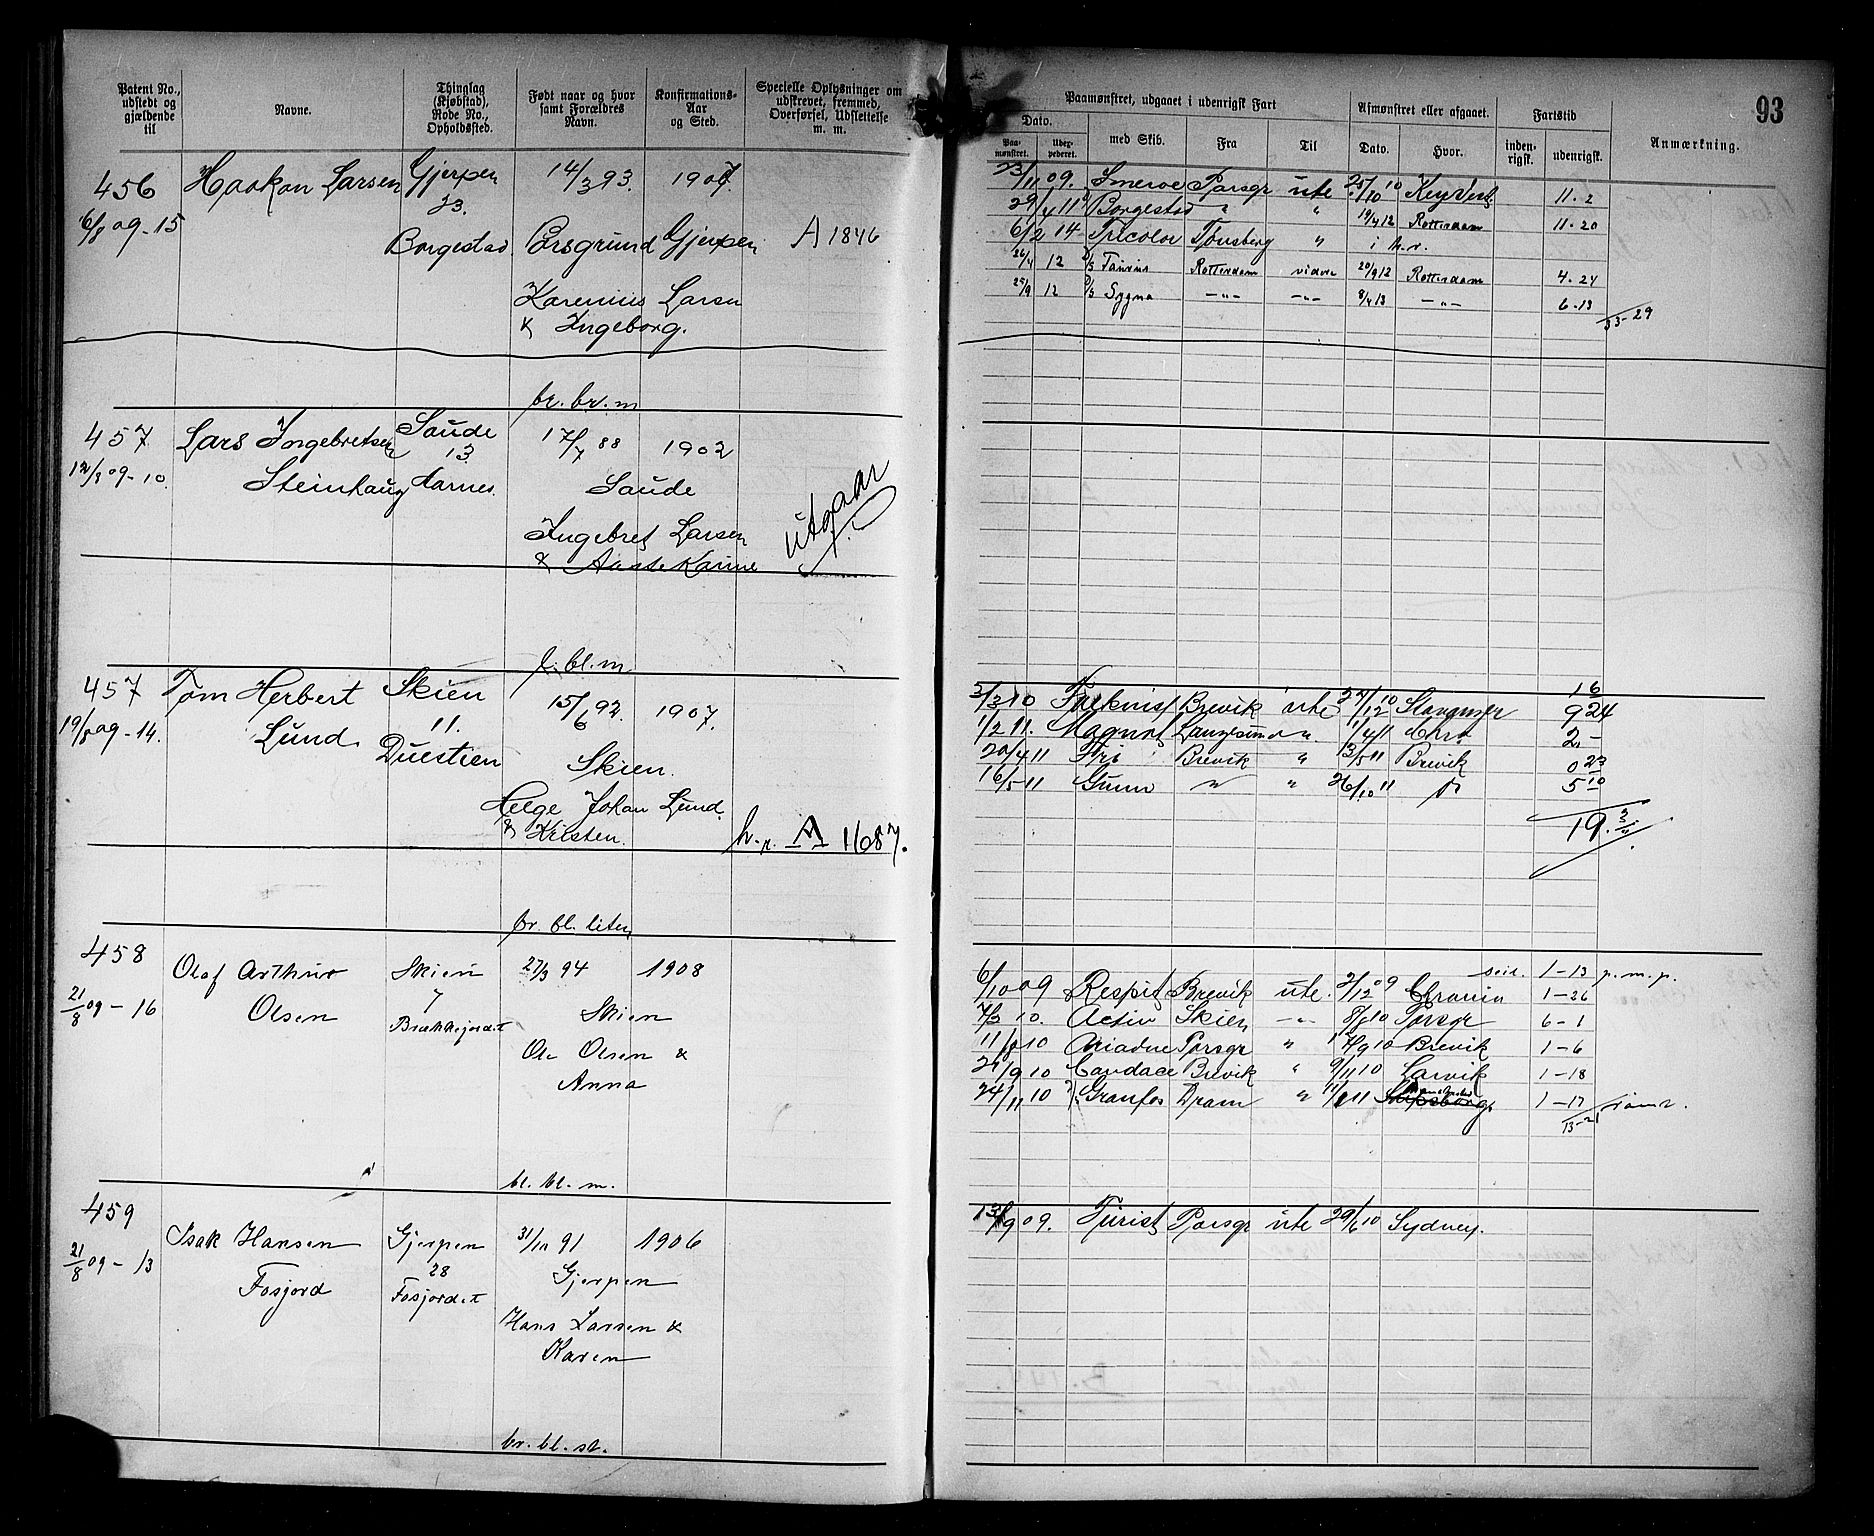 93
Patent No., udstedt og gjældende til
Navne.
Thinglag (Kjøbstad), Rode No., Opholdssted.
Født naar og hvor samt Forældres Navn.
Konfirmations-Aar og Sted.
Specielle Oplysninger om udskrevet, fremmed, Overførsel, Udslettelse m. m.
Paamønstret, udgaaet i udenrigsk Fart
Afmønstret eller afgaaet.
Fartstid
Anmærkning.
Dato.
med Skib.
Fra
Til
Dato.
Hvor.
inden-rigsk.
udenrigsk.
Paa-mønstret.
456 Haakon Larsen Gjerpen 14/3 93. 1907.
6/8 09-15 23.
Borgestad Porsgrund Gjerpen A 1846
Karenius Larsen
& Ingeborg.
br. br. m
23/11 09. Porsgr ute 25/10 10 Key West 11-2
29/4 11 Borgestad " " 19/4 12 Rotterdam 11-20
6/2 14 Tricolor Tønsberg "
26/4 12 D/S Rotterdam vidre 20/9 12 Rotterdam 4-24
25/9 12 D/S Sygna -"- -"- 8/4 13 -"- 6-13
33-29
457 Lars Ingebretsen Saude 17/7 88 1902
12/8 09-10. 13.
Steinhaug Aarnes. Saude
Ingebret Larsen
utgaar
bl. m
457 Tom Herbert Skien 15/6 92. 1907.
19/8 09-14. Lund 11.
Duestien Skien.
Helge Johan Lund
& Kristen. A 1687.
br. bl. liten
3/3 10 Brevik ute 10 Stavanger 9 24
1/2 11. Magnat Langesund " 1/4 11 2 -
20/4 11 Fri Brevik " 13/5 11 Brevik 0 23
16/5 11 Gunn " " 26/10 11 5 10
19.
458 Olaf Arthur Skien 27/3 94 1908
21/8 09-16 Olsen 7
Brækkejordet Skien
Ole Olsen &
Anna
bl. bl. m.
1-13 p.m.p.
6/10 09 Respit Brevik ute. 2/12 09 1-26
7/3 10. Activ Skien -"- 8/8 10 Porsgr 6-1
11/8 10 Ariadne Porsgr " 10 Brevik 1-6
10 Candace Brevik " 9/11 10 Larvik 1-18
24/11 10 Granfos Dram " 11 1-17
13-21
459 Isak Hansen Gjerpen 31/10 91 1906
21/8 09-13 Fosjord 28
Fosjordet Gjerpen
Hans Larsen &
Karen
br. bl. st.
13/9 09. Turist Porsgr ute 29/6 10 Sydney.